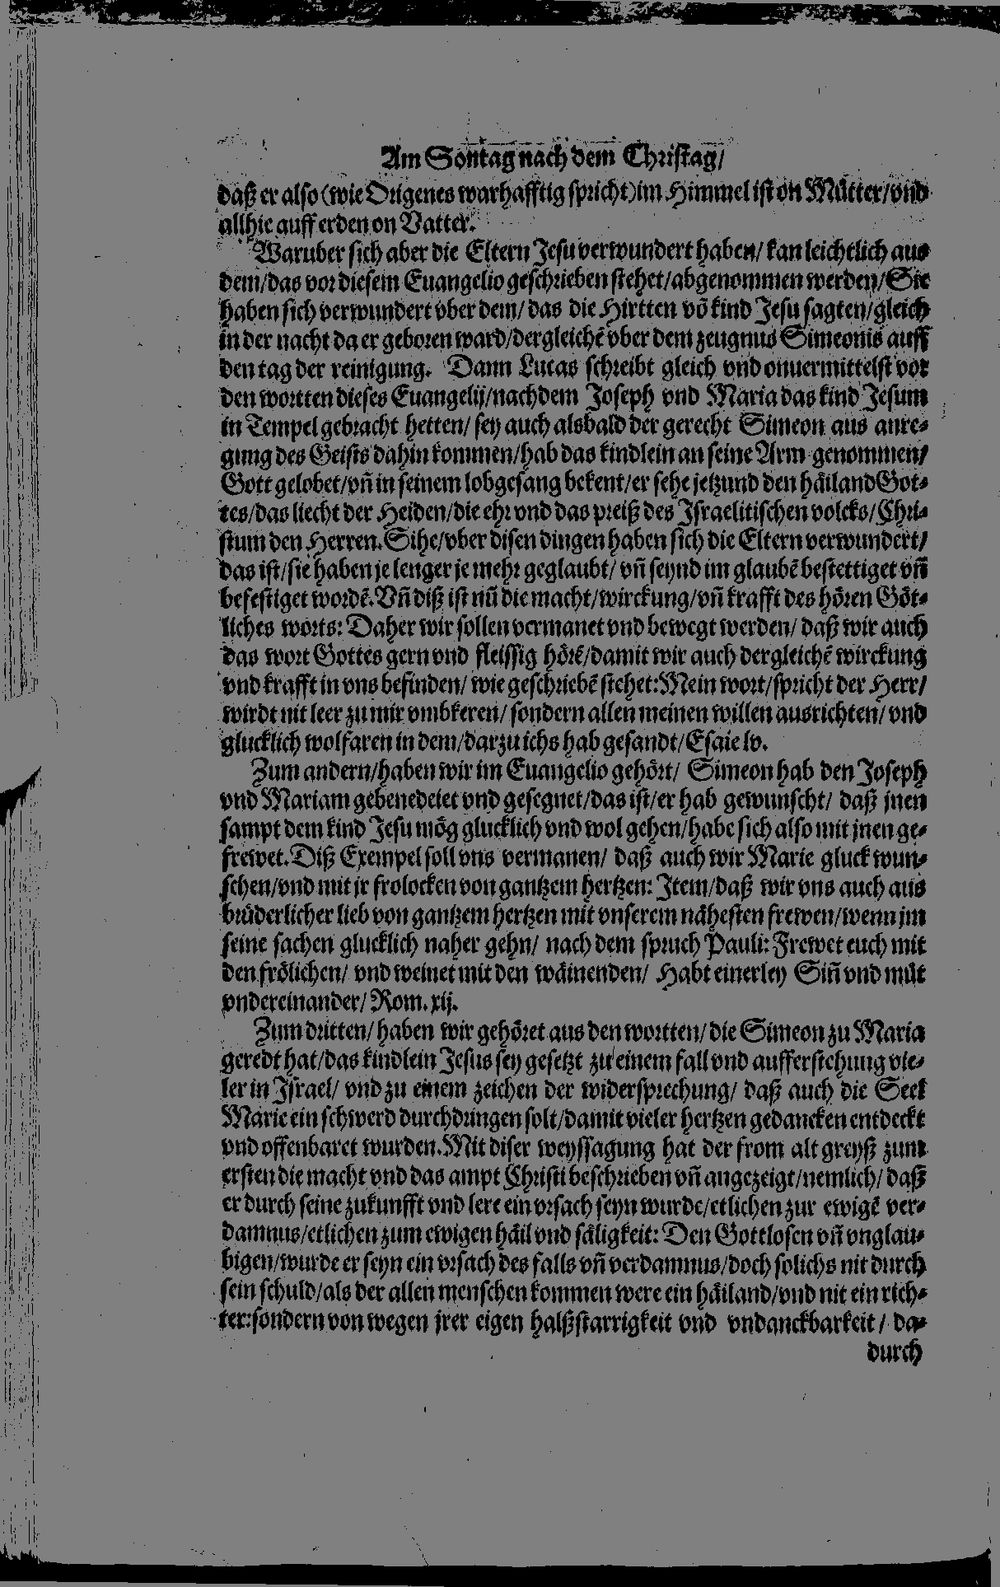 Am Sontag nach dem Christag/
daß er also (wie Origenes warhafftig spricht) im Himmel ist on Můtter/vnd
allhie auff erden on Vatter.
Waruber sich aber die Eltern Jesu verwundert haben/ kan leichtlich aus
dem/das vor diesem Euangelio geschrieben stehet/abgenommen werden/Sie
haben sich verwundert vber dem/ das die Hirtten võ kind Jesu sagten/gleich
in der nacht da er geboren ward/dergleichẽ vber dem zeugnus Simeonis auff
den tag der reinigung. Dann Lucas schreibt gleich vnd onuermittelst vor
den wortten dieses Euangelij/nachdem Joseph vnd Maria das kind Jesum
in Tempel gebracht hetten/ sey auch alsbald der gerecht Simeon aus anre-
gung des Geists dahin kommen/hab das kindlein an seine Arm genommen/
Gott gelobet/vñ in seinem lobgesang bekent/er sehe jetzund den häiland Got-
tes/das liecht der Heiden/die ehr vnd das preiß des Israelitischen volcks/Chri-
stum den Herren. Sihe/vber disen dingen haben sich die Eltern verwundert/
das ist/sie haben je lenger je mehr geglaubt/ vñ seynd im glaubẽ bestettiget vñ
befestiget wordẽ. Vñ diß ist nů die macht/wirckung/vñ krafft des hören Göt-
liches worts: Daher wir sollen vermanet vnd bewegt werden/ daß wir auch
das wort Gottes gern vnd fleissig hörẽ/damit wir auch dergleichẽ wirckung
vnd krafft in vns befinden/ wie geschriebẽ stehet: Mein wort/spricht der Herr/
wirdt nit leer zu mir vmbkeren/ sondern allen meinen willen ausrichten/ vnd
glucklich wolfaren in dem/darzu ichs hab gesandt/Esaie lv.
Zum andern/haben wir im Euangelio gehört/ Simeon hab den Joseph
vnd Mariam gebenedeiet vnd gesegnet/das ist/er hab gewunscht/ daß jnen
sampt dem kind Jesu mög glucklich vnd wol gehen/habe sich also mit jnen ge-
frewet. Diß Exempel soll vns vermanen/ daß auch wir Marie gluck wun-
schen/vnd mit jr frolocken von gantzem hertzen: Item/daß wir vns auch aus
brüderlicher lieb von gantzem hertzen mit vnserem nähesten frewen/wenn jm
seine sachen glucklich naher gehn/ nach dem spruch Pauli: Frewet euch mit
den frölichen/ vnd weinet mit den wäinenden/ Habt einerley Siñ vnd můt
vndereinander/ Rom. xij.
Zum dritten/ haben wir gehöret aus den wortten/ die Simeon zu Maria
geredt hat/das kindlein Jesus sey gesetzt zu einem fall vnd aufferstehung vie-
ler in Israel/ vnd zu einem zeichen der widersprechung/ daß auch die Seel
Marie ein schwerd durchdringen solt/damit vieler hertzen gedancken entdeckt
vnd offenbaret wurden. Mit diser weyssagung hat der from alt greyß zum
ersten die macht vnd das ampt Christi beschrieben vñ angezeigt/nemlich/ daß
er durch seine zukunfft vnd lere ein vrsach seyn wurde/etlichen zur ewigẽ ver-
damnus/etlichen zum ewigen häil vnd säligkeit: Den Gottlosen vñ vnglau-
bigen/wurde er seyn ein vrsach des falls vñ verdamnus/doch solichs nit durch
sein schuld/als der allen menschen kommen were ein häiland/vnd nit ein rich-
ter: sondern von wegen jrer eigen halßstarrigkeit vnd vndanckbarkeit/ da-
durch